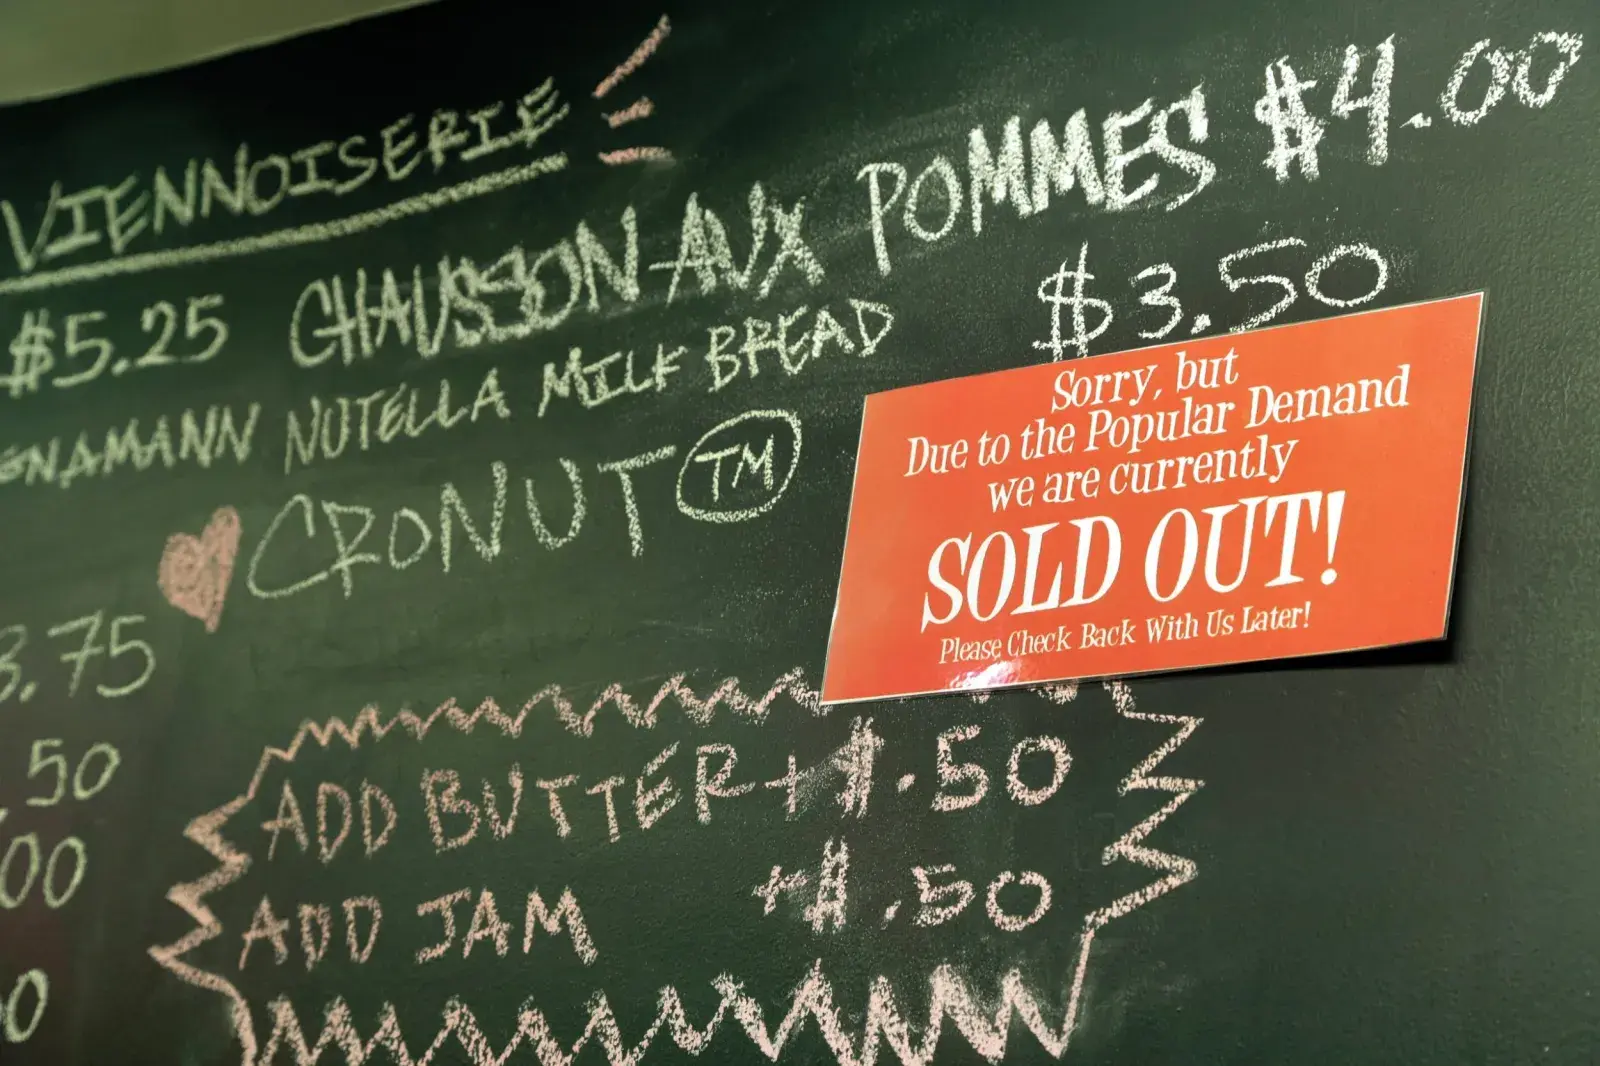 VIENNOISERIE
$5.25 CHAUSSON AUX POMMES $4.00
NUTELLA MILK BREAD $3.50
CRONUT TM
Sorry, but
Due to the Popular Demand
we are currently
SOLD OUT!
Please Check Back With Us Later!
.75
.50
00
ADD BUTTER +$.50
ADD JAM +$.50